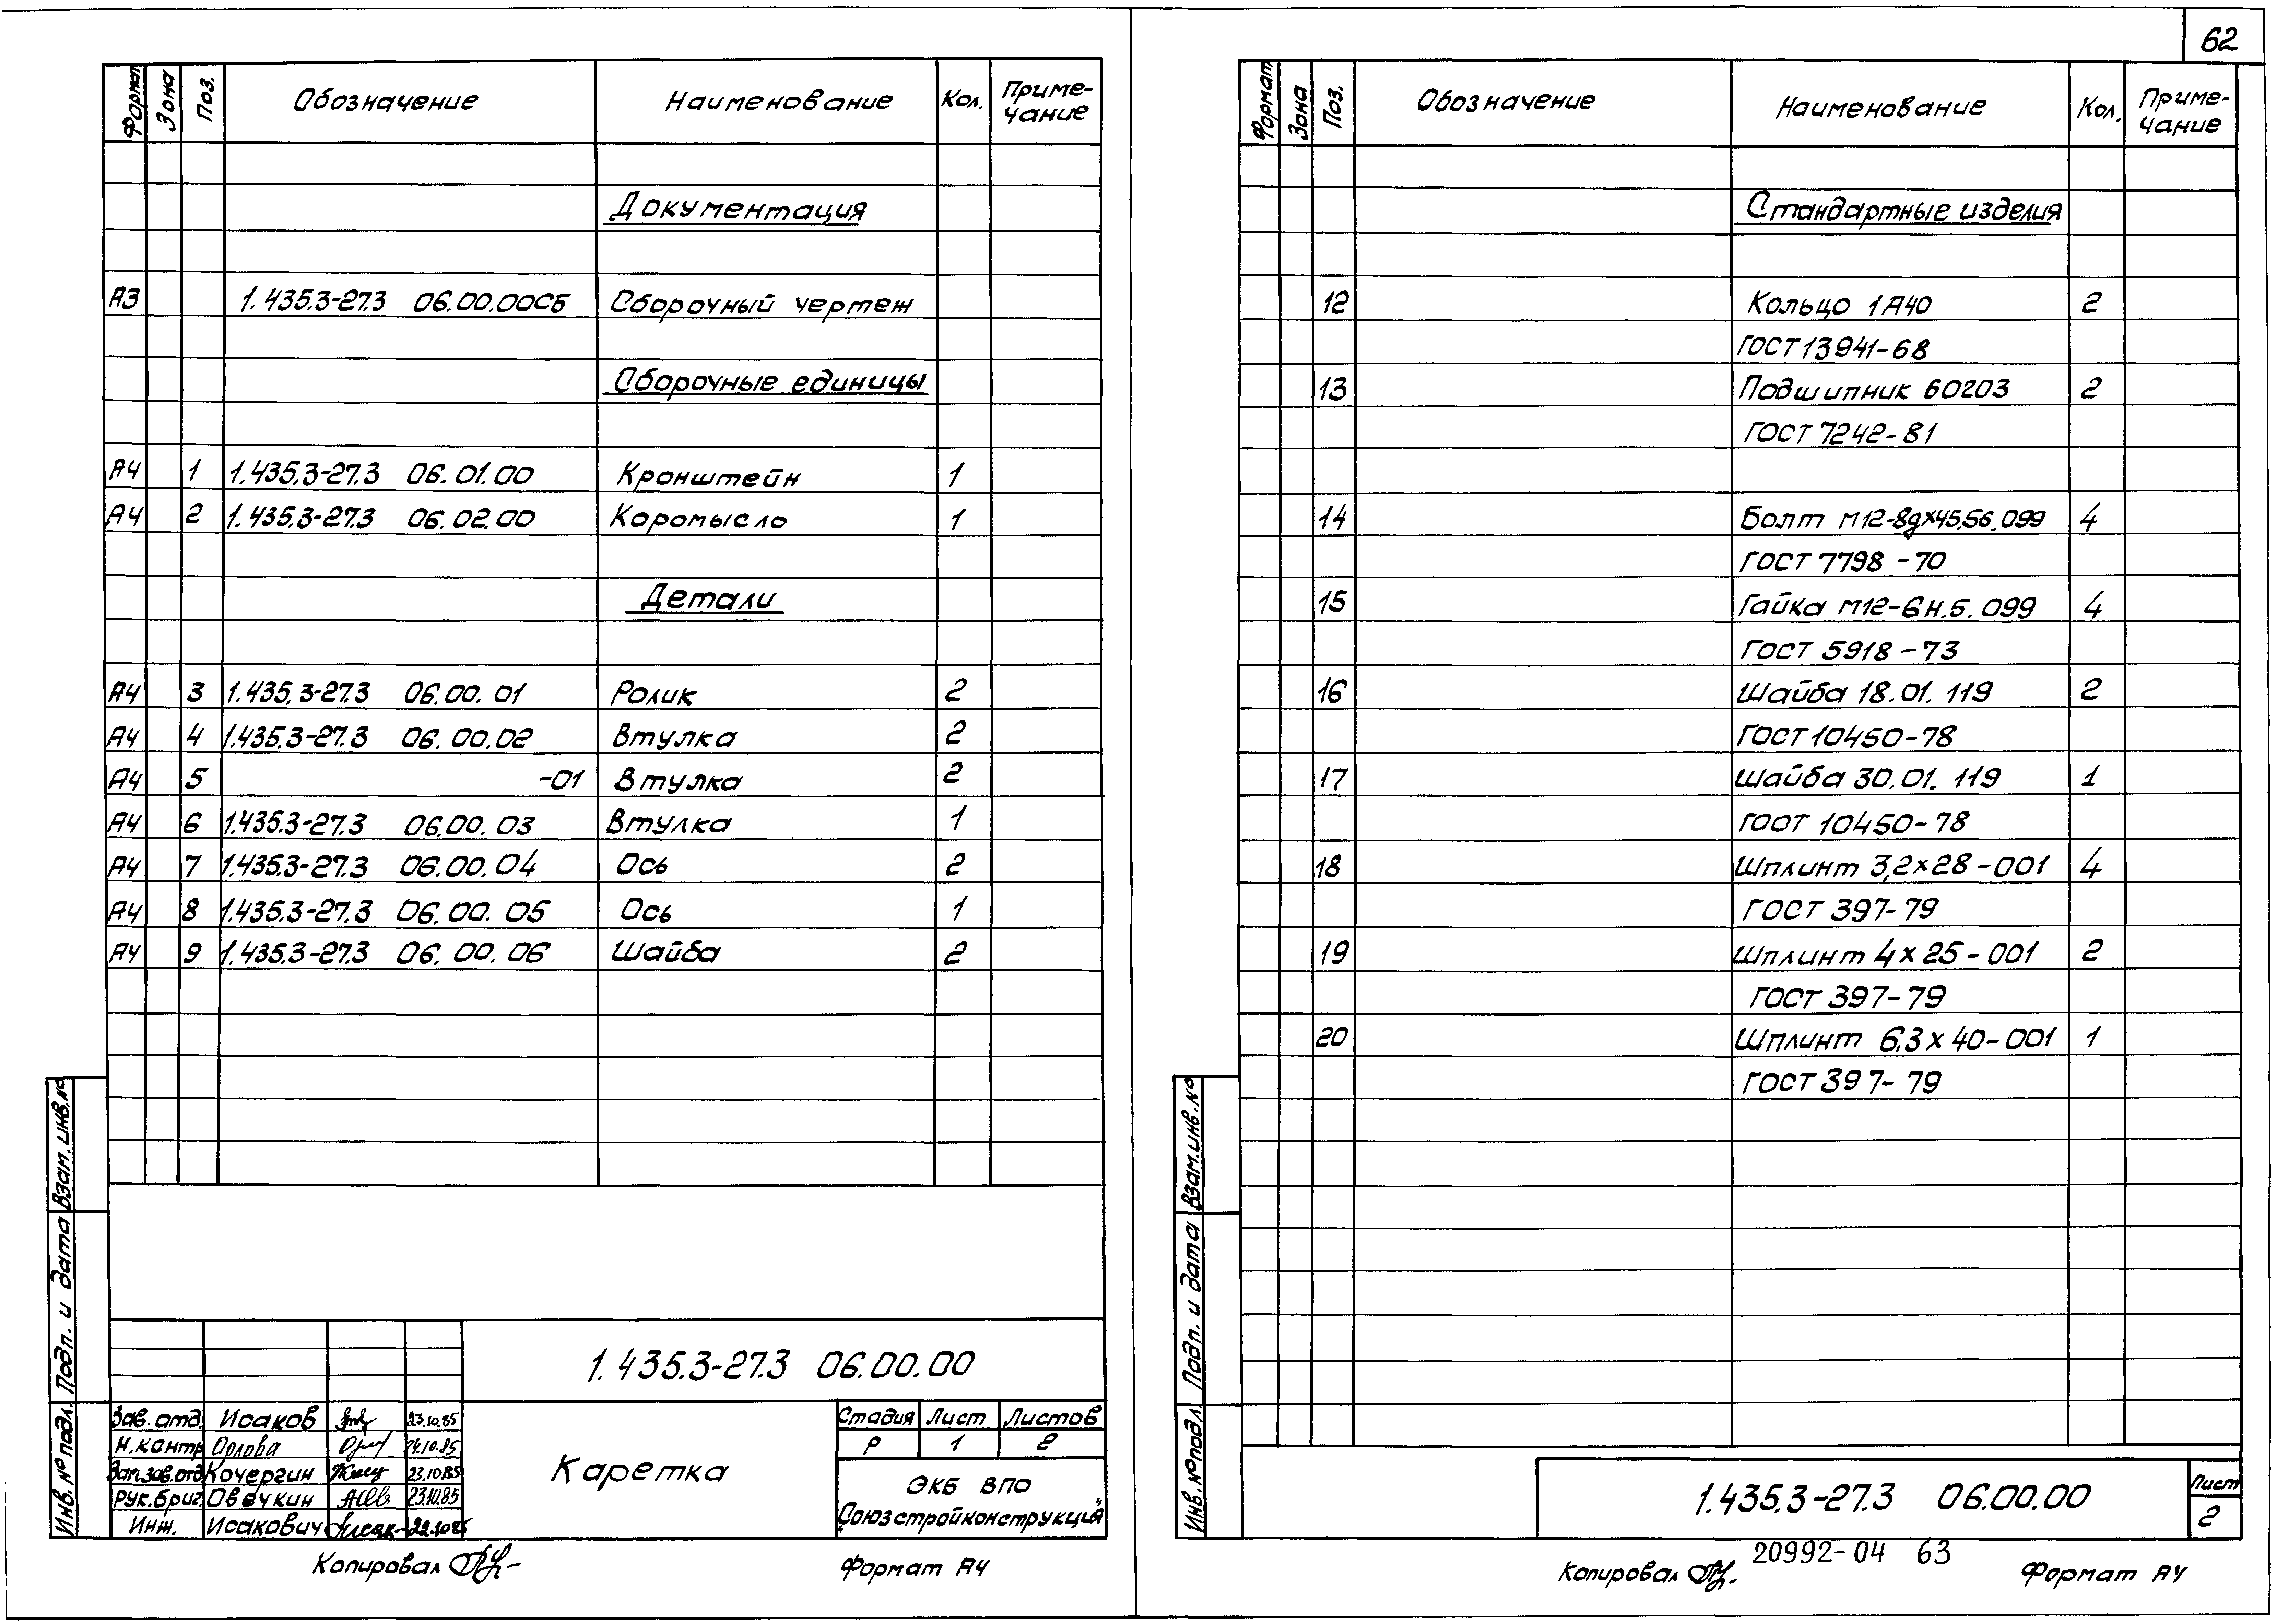 62
Формат Зона Поз. Обозначение Наименование Кол. Приме-
чание
Документация
А3 1.435.3-27.3 06.00.00СБ Сборочный чертеж
Сборочные единицы
А4 1 1.435.3-27.3 06.01.00 Кронштейн 1
А4 2 1.435.3-27.3 06.02.00 Коромысло 1
Детали
А4 3 1.435.3-27.3 06.00.01 Ролик 2
А4 4 1.435.3-27.3 06.00.02 Втулка 2
А4 5 -01 Втулка 2
А4 6 1.435.3-27.3 06.00.03 Втулка 1
А4 7 1.435.3-27.3 06.00.04 Ось 2
А4 8 1.435.3-27.3 06.00.05 Ось 1
А4 9 1.435.3-27.3 06.00.06 Шайба 2
Взам. инв. №
Подп. и дата
Инв. № подл.
1.435.3-27.3 06.00.00
Зав. отд. Исаков 23.10.85
Н.контр Орлова 24.10.85
Зап.зав.отд Кочергин 23.10.85
Рук.бриг. Овечкин 23.10.85
Инж. Исакович 22.10.85
Каретка
Стадия Лист Листов
Р 1 2
ЭКБ ВПО
"Союзстройконструкция"
Копировал
Формат А4
Формат Зона Поз. Обозначение Наименование Кол. Приме-
чание
Стандартные изделия
12 Кольцо 1А40 2
ГОСТ 13941-68
13 Подшипник 60203 2
ГОСТ 7242-81
14 Болт М12-8gх45.56.099 4
ГОСТ 7798-70
15 Гайка М12-6Н.5.099 4
ГОСТ 5918-73
16 Шайба 18.01.119 2
ГОСТ 10450-78
17 Шайба 30.01.119 1
ГОСТ 10450-78
18 Шплинт 3,2х28-001 4
ГОСТ 397-79
19 Шплинт 4х25-001 2
ГОСТ 397-79
20 Шплинт 6,3х40-001 1
ГОСТ 397-79
Взам.инв.№
Подп. и дата
Инв.№ подл.
1.435.3-27.3 06.00.00
Лист
2
20992-04 63
Копировал
Формат А4